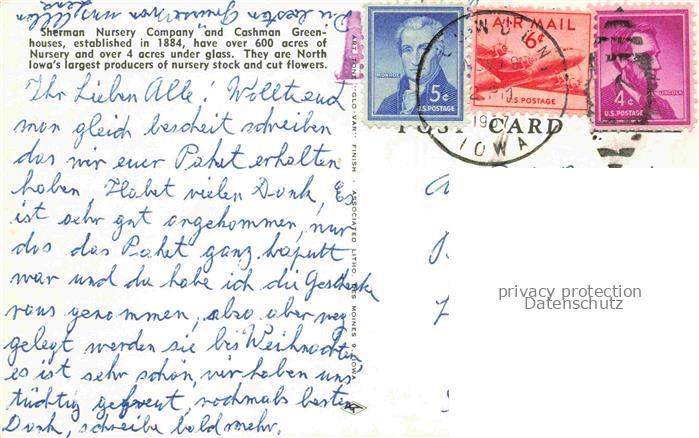 Die besten Grüsse von uns allen
Lena
Sherman Nursery Company and Cashman Green-
houses, established in 1884, have over 600 acres of
Nursery and over 4 acres under glass. They are North
Iowa's largest producers of nursery stock and cut flowers.
Ihr Lieben Alle. Wollte euch
man gleich bescheit schreiben
das wir euer Paket erhalten
haben, Habet vielen Dank, Es
ist sehr gut angekommen, nur
das das Paket ganz kaputt
war und da habe ich die Geschenke
raus genommen, also aber weg
gelegt werden sie bis Weihnachten
es ist sehr schön, wir haben uns
tüchtig gefreut, nochmals besten
Dank, schreibe bald mehr.
ART TONE "GLO-VAR" FINISH • ASSOCIATED LITHO, DES MOINES 9, IOWA
MONROE
5¢
U.S. POSTAGE
AIR MAIL
6¢
U.S. POSTAGE
LINCOLN
4¢
U.S. POSTAGE
IOWA
POST CARD
privacy protection
Datenschutz